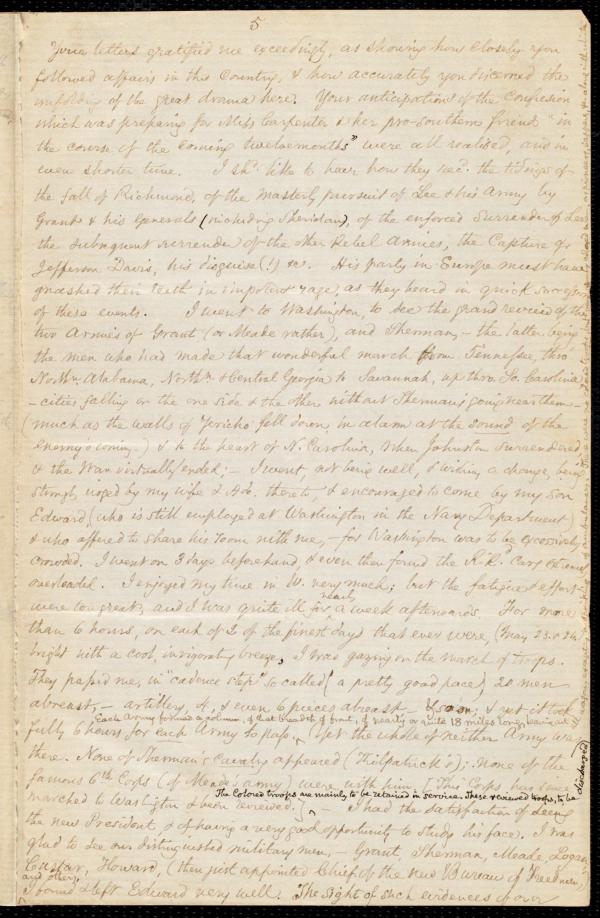 5
Your letters gratified me exceedingly, as showing how closely you
followed affairs in this Country, & how accurately you discerned the
unfolding of the great drama here. Your anticipations of the Confusion
which was preparing for Miss Carpenter & her pro-southern friend "in
the course of the coming twelvemonths" were all realised, and in
even shorter time. I shd. like to hear how they recd. the tidings of
the fall of Richmond, of the masterly pursuit of Lee & his Army by
Grant & his Generals (including Sheridan), of the enforced surrender of Lee
the subsequent surrender of the other Rebel Armies, the Capture of
Jefferson Davis, his disguise (!) &c. His party in Europe must have
gnashed their teeth in impotent rage, as they heard in quick succession
of these events. I went to Washington, to see the grand review of the
two Armies of Grant (or Meade rather), and Sherman, – the latter being
the men who had made that wonderful march from Tennessee, thro'
Northn. Alabama, Northn. & Central Georgia to Savannah, up thro. So. Carolina
– cities falling on the one side & the other without Sherman's going near them –
(much as the walls of Jericho fell down, in alarm at the sound of the
enemy's coming,) & to the heart of N. Carolina, when Johnston surrendered
& the War virtually ended; – I went, not being well, & wishing a change, being
strongly urged by my wife & thereto, & encouraged to come by my son
Edward, (who is still employed at Washington in the Navy Department)
& who offered to share his room with me, – for Washington was to be excessively
crowded. I went on 3 days beforehand, & even then found the R.Rd. Cars
overloaded. I enjoyed my time in W. very much; but the fatigue & effort
were too great, and I was quite ill for nearly a week afterwards. For more
than 6 hours, on each of 2 of the finest days that ever were, (May 23 & 24)
bright with a cool, invigorating breeze, I was gazing on the march of troops.
They passed me, in "cadence step" so called (a pretty good pace), 20 men
abreast, – artillery, 4, & even 6 pieces abreast – & so on; & yet it took
fully 6 hours for each Army to pass. Yet the whole of neither Army was
Each Army formed a column, of that breadth of front, of nearly or quite 18 miles long,
there. None of Sherman's Cavalry appeared (Kilpatrick's); none of the
famous 6th Corps (of Meade's army) were with him. [This Corps has since
marched to Washington & been reviewed.] I had the satisfaction of seeing
The Colored troops are mainly to be retained in service. These & reviewed troops, to be discharged
the new President, & of having a very good opportunity to study his face. I was
glad to see our distinguished military men, – Grant, Sherman, Meade, Logan,
Custar, Howard, (then just appointed Chief of the new Bureau of Freedmen)
and others.
I found & left Edward very well. The sight of such evidences of our